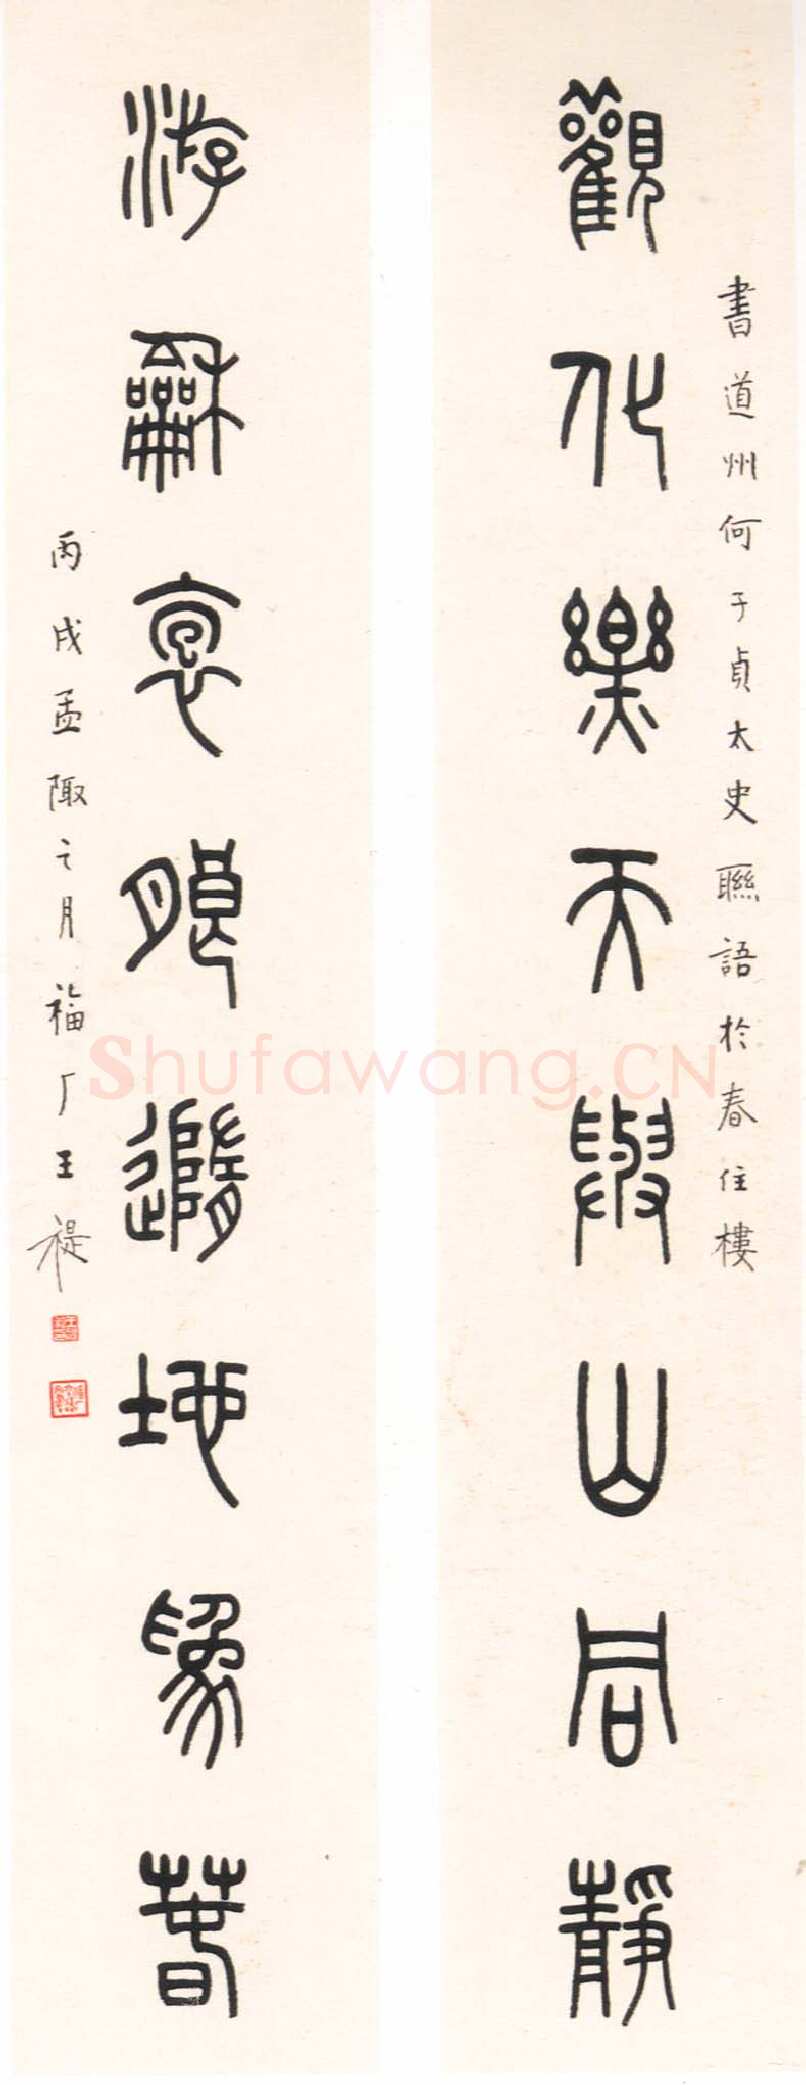 書道州何子貞太史聯語於春住樓
觀化樂天與山同靜
游龢朗隨地爲春
丙戌孟陬之月福厂王禔
Shufawang.CN